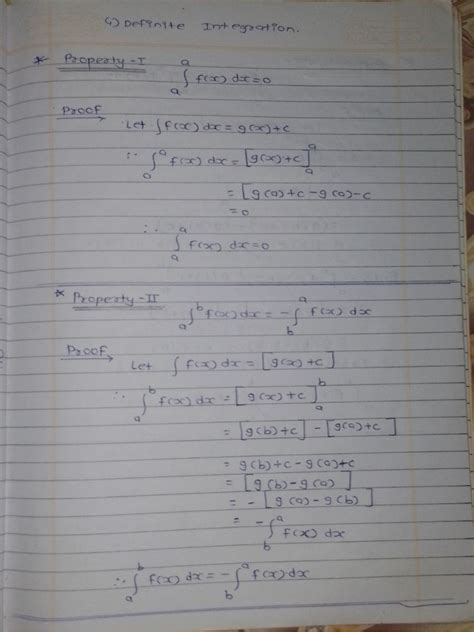 4) Definite Integration.
* Property-I ∫ₐᵃ f(x) dx = 0
Proof
Let ∫f(x) dx = g(x)+c
∵ ∫ₐᵃ f(x) dx = [g(x)+c]ₐᵃ
= [g(a)+c-g(a)-c
= 0
∴ ∫ₐᵃ f(x) dx = 0
* Property-II ∫ₐᵇ f(x) dx = -∫ᵇᵃ f(x) dx
Proof
Let ∫ f(x) dx = [g(x)+c]
∴ ∫ₐᵇ f(x) dx = [g(x)+c]ₐᵇ
= [g(b)+c] - [g(a)+c]
= g(b)+c-g(a)+c
= [g(b)-g(a)]
= -[g(a)-g(b)]
= -∫ᵇᵃ f(x) dx
∴ ∫ₐᵇ f(x) dx = -∫ᵇᵃ f(x) dx